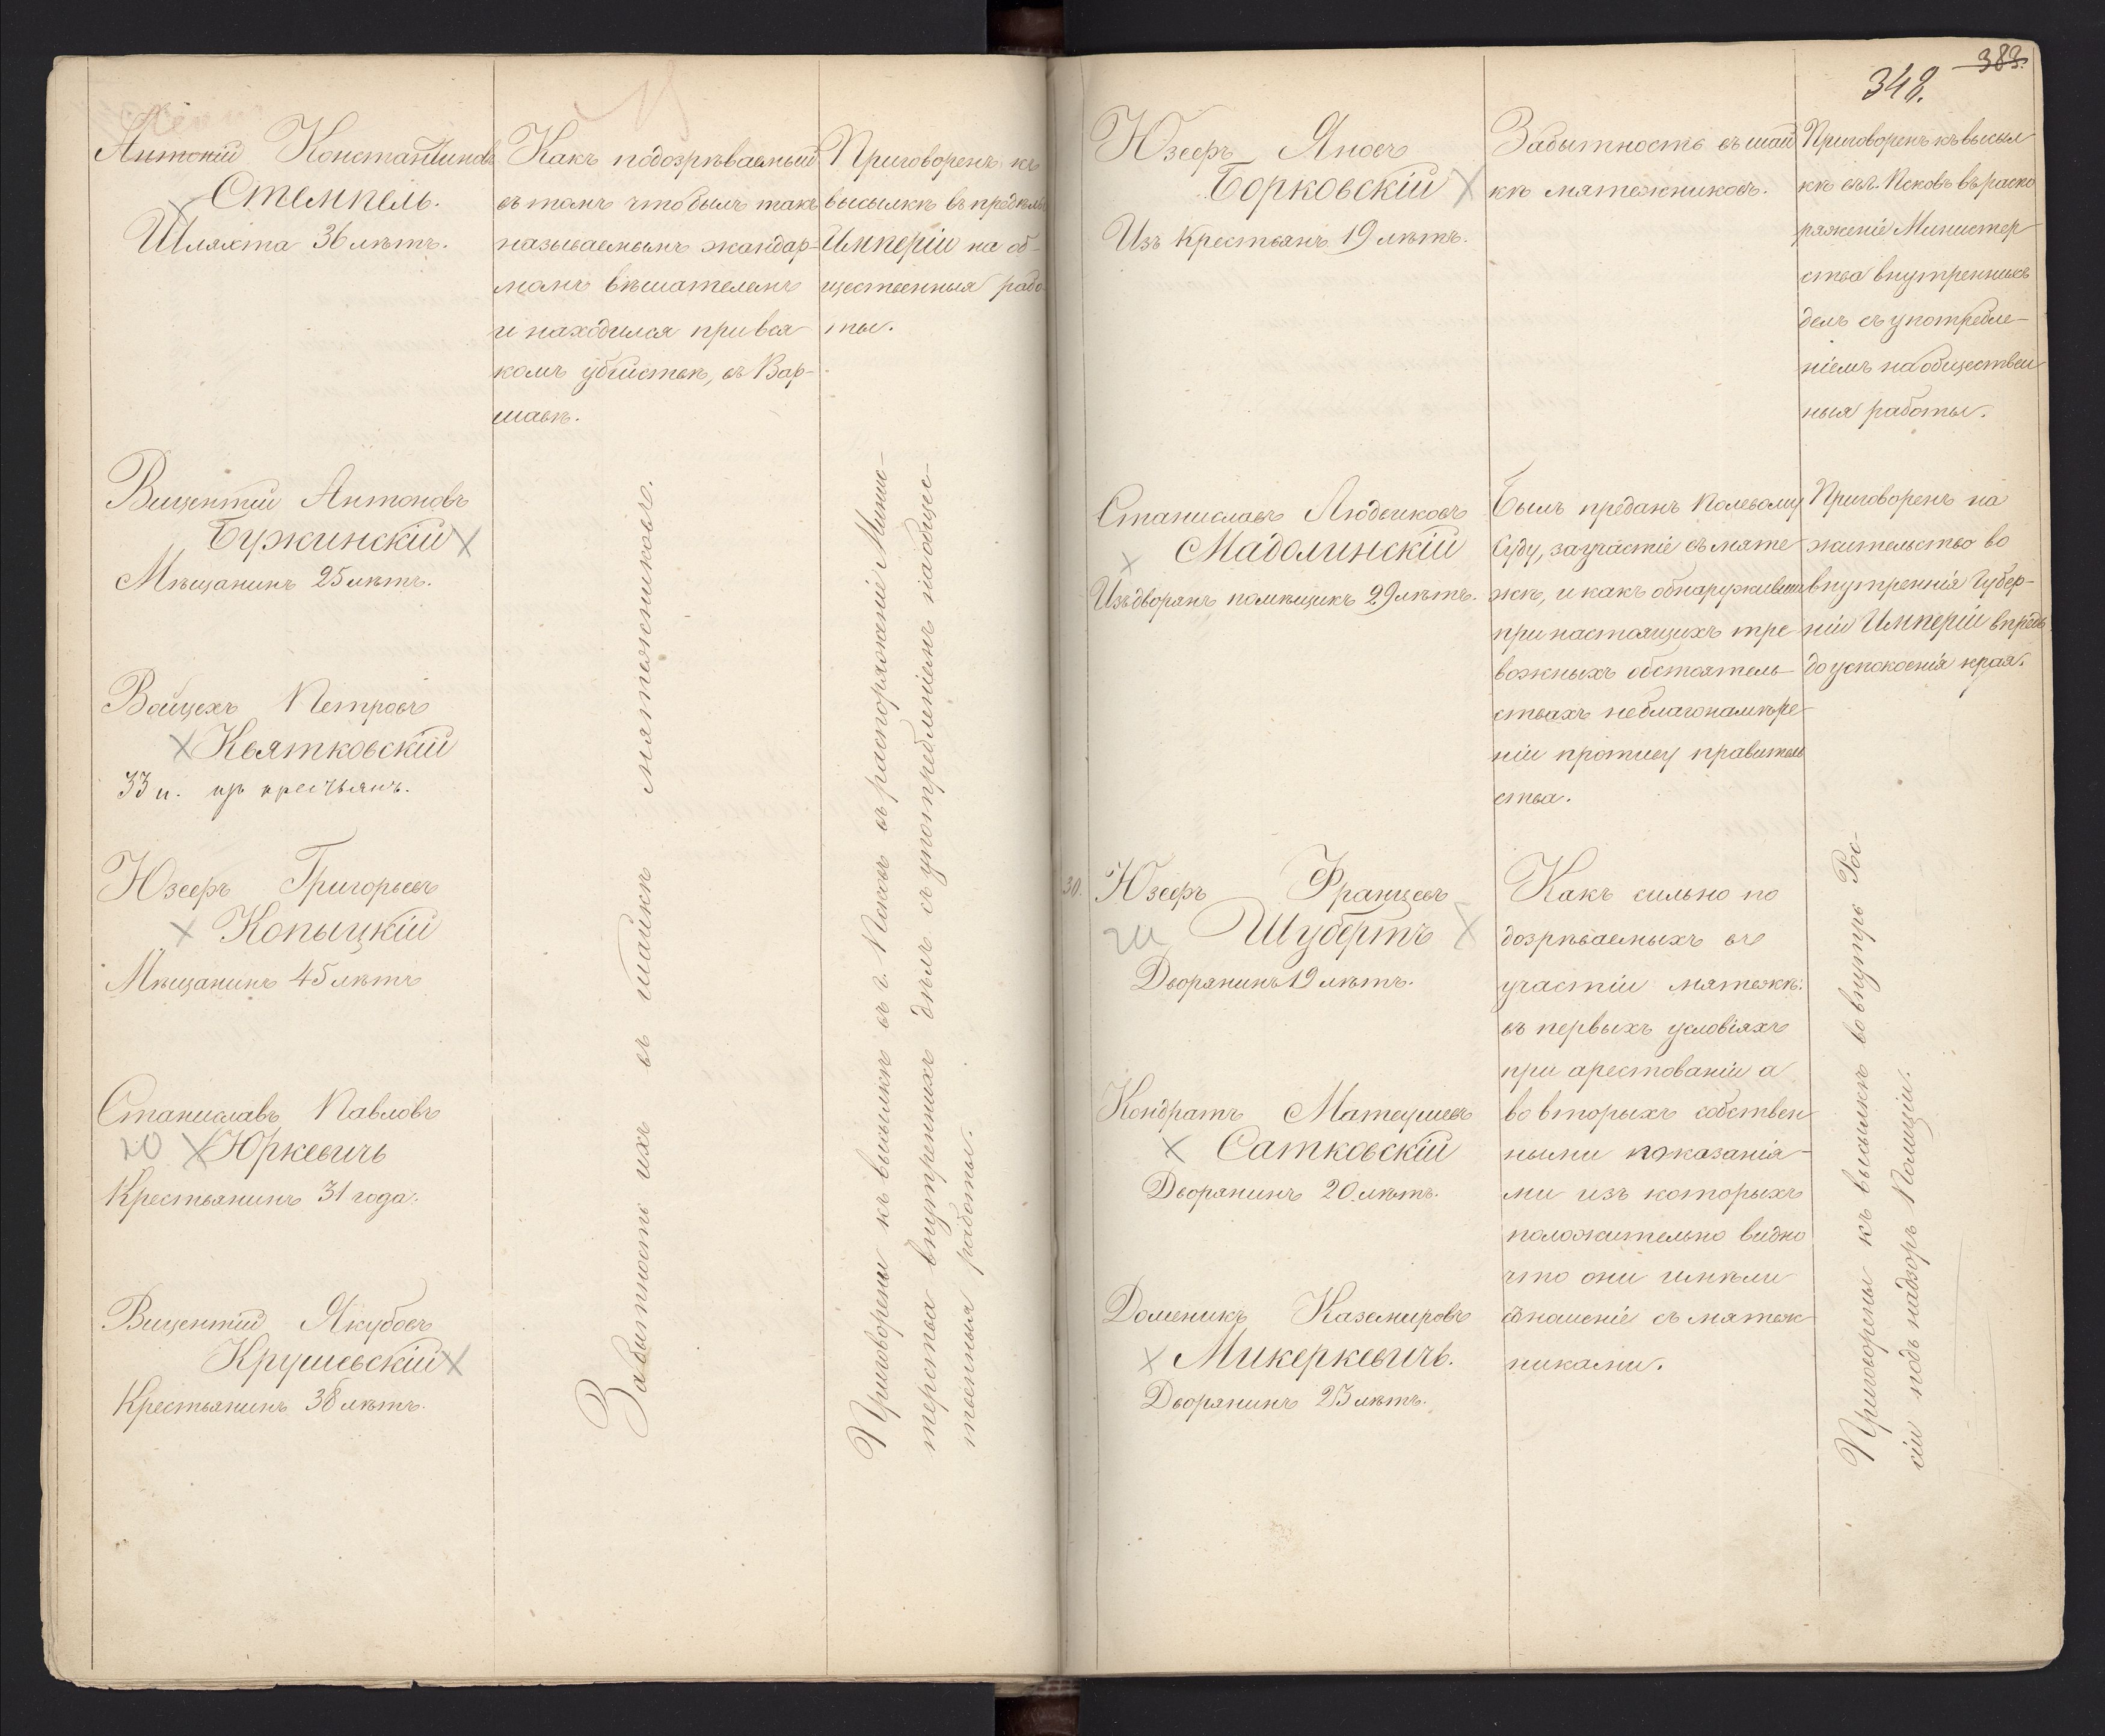 Антоній Константиновъ
Стемпель.
Шляхта 36 лѣтъ.
Какъ подозрѣваемый
въ томъ что былъ такъ
называемымъ жандар-
момъ вѣшателемъ
и находился при вся
комъ убійствѣ, въ Вар-
шавѣ.
Приговоренъ къ
высылкѣ въ предѣлы
Имперіи на об-
щественныя рабо
ты.
Вицентій Антоновъ
Бужинскій
Мѣщанинъ 25 лѣтъ.
Войцехъ Петровъ
Квятковскій
33 л. изъ крестьянъ.
Юзефъ Григорьевъ
Копыцкій
Мѣщанинъ 45 лѣтъ
Станиславъ Павловъ
20 Юркевичъ
Крестьянинъ 31 года.
Вицентій Якубовъ
Крушевскій
Крестьянинъ 38 лѣтъ.
Забытность ихъ въ шайкѣ мятежниковъ.
Приговорены къ высылкѣ въ г. Псковъ въ распоряженіе Минис-
терства внутреннихъ дѣлъ съ употребленіемъ на общес-
твенныя работы.
383.
348.
Юзефъ Яновъ
Борковскій
Изъ крестьянъ 19 лѣтъ.
Забытность въ шай
кѣ мятежниковъ.
Приговоренъ къ высыл
кѣ въ г. Псковъ въ распо
ряженіе Министер
ства внутреннихъ
делъ съ употребле-
ніемъ на обществен
ныя работы.
Станиславъ Людвиковъ
Мадолинскій
Изъ дворянъ помѣщикъ 29 лѣтъ.
Былъ преданъ Полевому
Суду, за участіе въ мяте
жѣ, и какъ обнаружившій
при настоящихъ тре
вожныхъ обстоятель-
ствахъ неблагонамѣре
ніи противу правитель
ства.
Приговоренъ на
жительство во
внутреннія Губер-
ніи Имперіи впредь
до успокоенія края.
30.
Юзефъ Францовъ
Шубертъ
Дворянинъ 19 лѣтъ.
Кондратъ Матеушевъ
Сатковскій
Дворянинъ 20 лѣтъ.
Доменикъ Каземировъ
Микеркевичъ.
Дворянинъ 23 лѣтъ.
Какъ сильно по
дозрѣваемыхъ въ
участіи мятежѣ.
въ первыхъ условіяхъ
при арестованіи а
во вторыхъ собствен
ными показанія-
ми изъ которыхъ
положительно видно
что они имѣли
сношеніе съ мятеж
никами.
Приговорены къ высылкѣ во внутрь Рос-
сіи подъ надзоръ Полиціи.